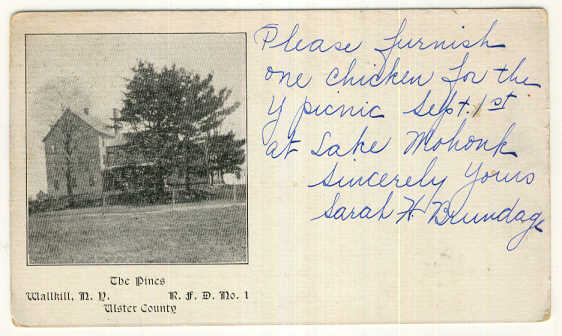 Please furnish
one chicken for the
Y picnic Sept. 1st
at Lake Mohonk
Sincerely Yours
Sarah H Brundage
The Pines
Wallkill, N. Y. R. F. D. No. 1
Ulster County